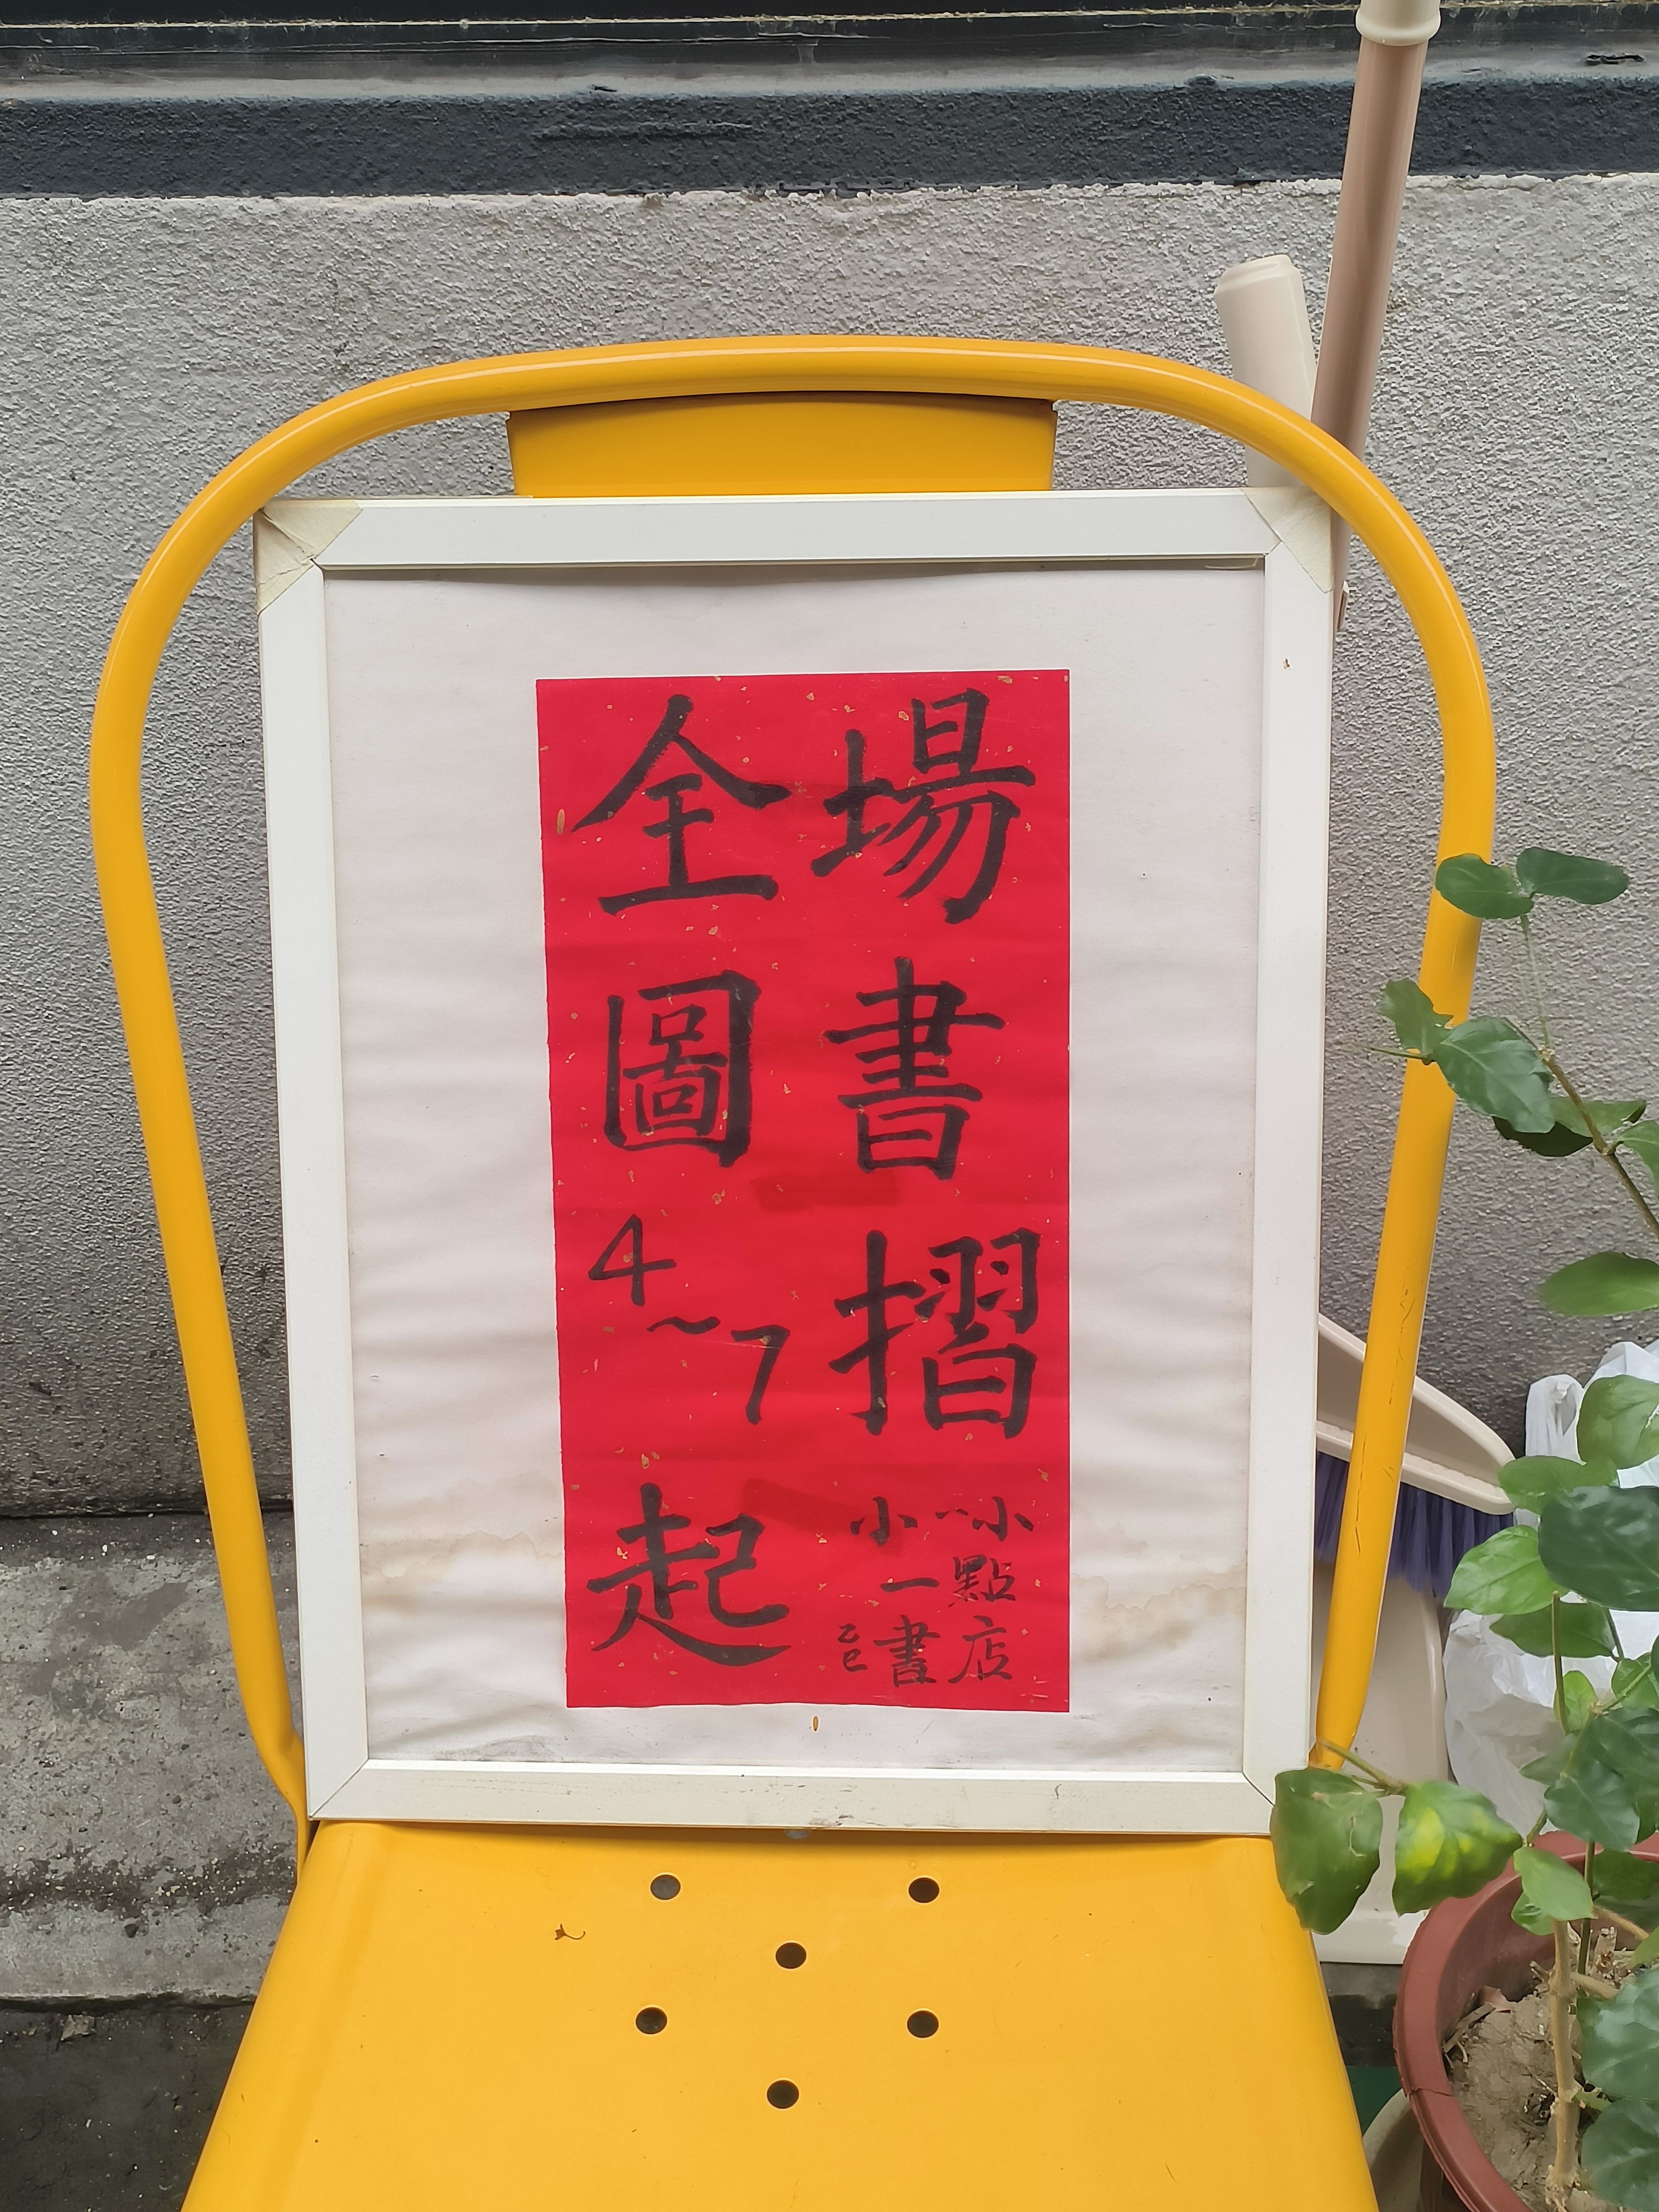 全場
圖書
4～7摺
起
小小
一點
書店
乙巳